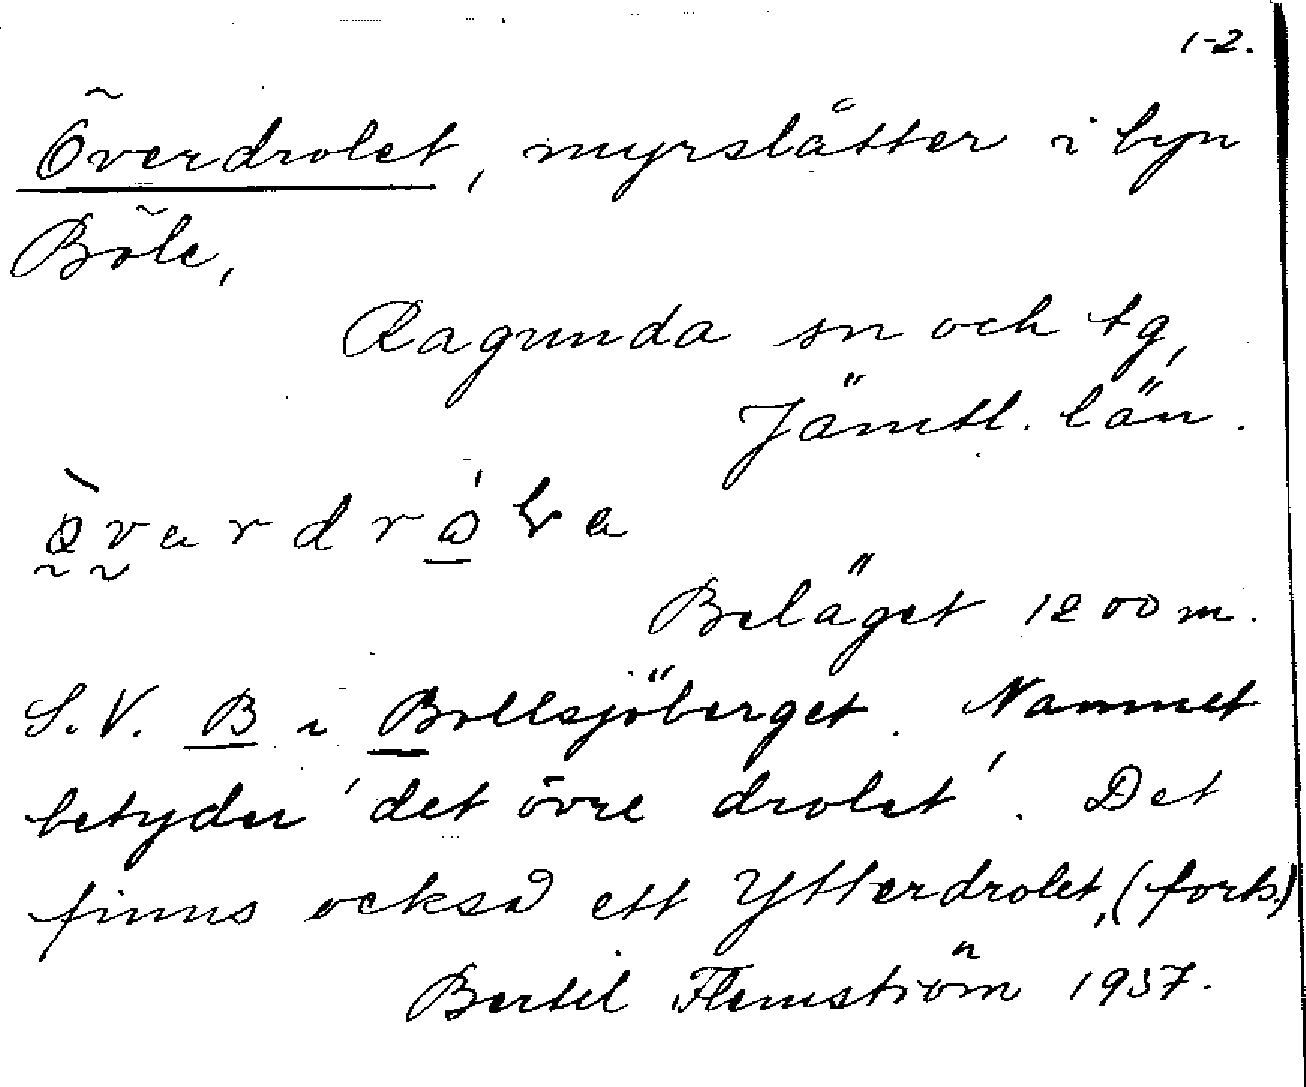 1-2.
Överdrolet, myrslåtter i byn
Böle,
Ragunda sn och tg,
Jämtl. län.
Beläget 1200 m.
S.V. B i Bollsjöberget. Namnet
betyder 'det övre drolet'. Det
finns också ett Ytterdrolet, (forts.)
Bertil Flemström 1937.